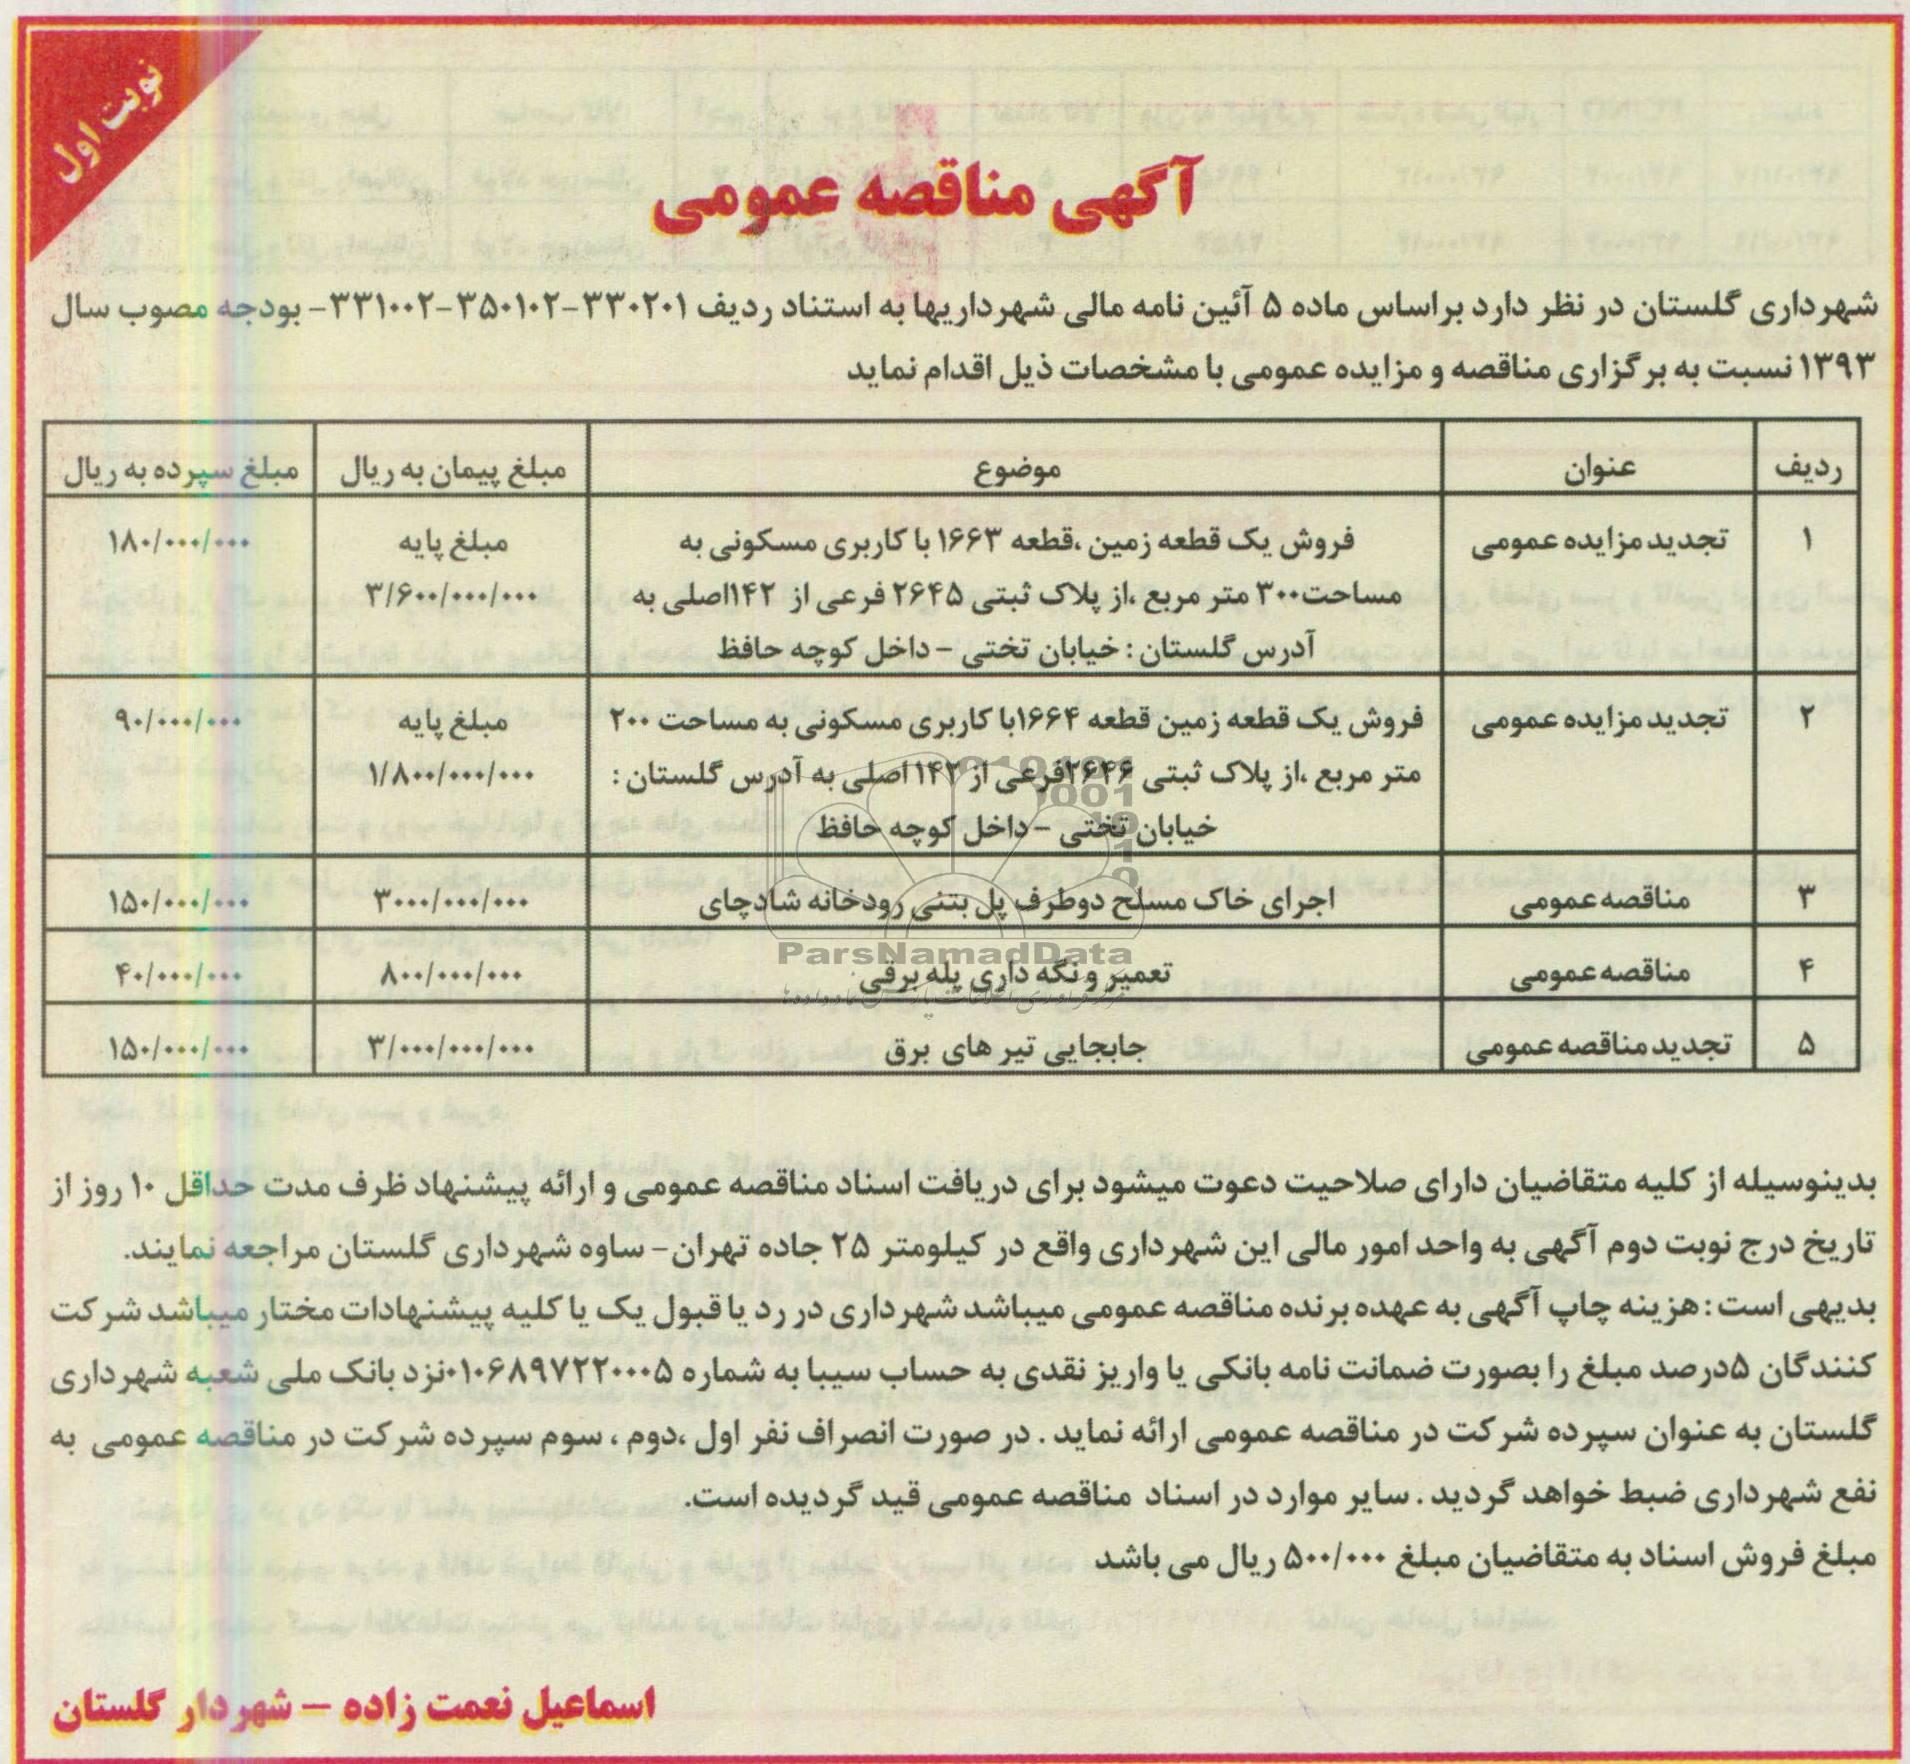 نوبت اول
آگهی مناقصه عمومی
شهرداری گلستان در نظر دارد براساس ماده ۵ آئین نامه مالی شهرداریها به استناد ردیف ۳۳۰۲۰۱-۳۵۰۱۰۲-۳۳۱۰۰۲- بودجه مصوب سال
۱۳۹۳ نسبت به برگزاری مناقصه و مزایده عمومی با مشخصات ذیل اقدام نماید
ردیف عنوان موضوع مبلغ پیمان به ریال مبلغ سپرده به ریال
۱ تجدید مزایده عمومی فروش یک قطعه زمین ،قطعه ۱۶۶۳ با کاربری مسکونی به مبلغ پایه ۱۸۰/۰۰۰/۰۰۰
مساحت۳۰۰ متر مربع ،از پلاک ثبتی ۲۶۴۵ فرعی از ۱۴۲اصلی به ۳/۶۰۰/۰۰۰/۰۰۰
آدرس گلستان : خیابان تختی - داخل کوچه حافظ
۲ تجدید مزایده عمومی فروش یک قطعه زمین قطعه ۱۶۶۴با کاربری مسکونی به مساحت ۲۰۰ مبلغ پایه ۹۰/۰۰۰/۰۰۰
متر مربع ،از پلاک ثبتی ۲۶۴۶فرعی از ۱۴۲ اصلی به آدرس گلستان : ۱/۸۰۰/۰۰۰/۰۰۰
خیابان تختی - داخل کوچه حافظ
۳ مناقصه عمومی اجرای خاک مسلح دوطرف پل بتنی رودخانه شادچای ۳۰۰۰/۰۰۰/۰۰۰ ۱۵۰/۰۰۰/۰۰۰
ParsNamadData
۴ مناقصه عمومی تعمیر و نگه داری پله برقی ۸۰۰/۰۰۰/۰۰۰ ۴۰/۰۰۰/۰۰۰
۵ تجدید مناقصه عمومی جابجایی تیر های برق ۳/۰۰۰/۰۰۰/۰۰۰ ۱۵۰/۰۰۰/۰۰۰
بدینوسیله از کلیه متقاضیان دارای صلاحیت دعوت میشود برای دریافت اسناد مناقصه عمومی و ارائه پیشنهاد ظرف مدت حداقل ۱۰ روز از
تاریخ درج نوبت دوم آگهی به واحد امور مالی این شهرداری واقع در کیلومتر ۲۵ جاده تهران- ساوه شهرداری گلستان مراجعه نمایند.
بدیهی است : هزینه چاپ آگهی به عهده برنده مناقصه عمومی میباشد شهرداری در رد یا قبول یک یا کلیه پیشنهادات مختار میباشد شرکت
کنندگان ۵درصد مبلغ را بصورت ضمانت نامه بانکی یا واریز نقدی به حساب سیبا به شماره ۰۱۰۶۸۹۷۲۲۰۰۰۵نزد بانک ملی شعبه شهرداری
گلستان به عنوان سپرده شرکت در مناقصه عمومی ارائه نماید . در صورت انصراف نفر اول ،دوم ، سوم سپرده شرکت در مناقصه عمومی به
نفع شهرداری ضبط خواهد گردید . سایر موارد در اسناد مناقصه عمومی قید گردیده است.
مبلغ فروش اسناد به متقاضیان مبلغ ۵۰۰/۰۰۰ ریال می باشد
اسماعیل نعمت زاده – شهردار گلستان